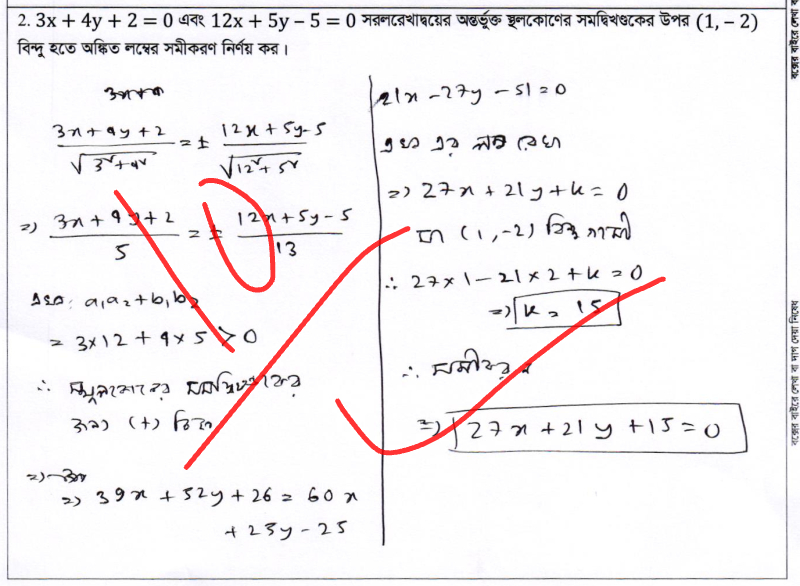 2. 3x + 4y + 2 = 0 এবং 12x + 5y – 5 = 0 সরলরেখাদ্বয়ের অন্তর্ভুক্ত স্থূলকোণের সমদ্বিখণ্ডকের উপর (1, – 2)
বিন্দু হতে অঙ্কিত লম্বের সমীকরণ নির্ণয় কর।
(3x+4y+2)/√(3²+4²) = ± (12x+5y-5)/√(12²+5²)
=> (3x+4y+2)/5 = ± (12x+5y-5)/13
এখন, a₁a₂+b₁b₂
= 3×12 + 4×5 > 0
∴ স্থূলকোণের সমদ্বিখণ্ডকের
জন্য (+) চিহ্ন
=> 39x + 52y + 26 = 60x
+ 25y - 25
21x - 27y - 51 = 0
এখন এর লম্ব রেখা
=> 27x + 21y + k = 0
যা (1, -2) বিন্দুগামী
∴ 27×1 - 21×2 + k = 0
=> k = 15
∴ সমীকরণ
=> 27x + 21y + 15 = 0
10
বক্সের বাইরে লেখা বা দাগ দেয়া নিষেধ